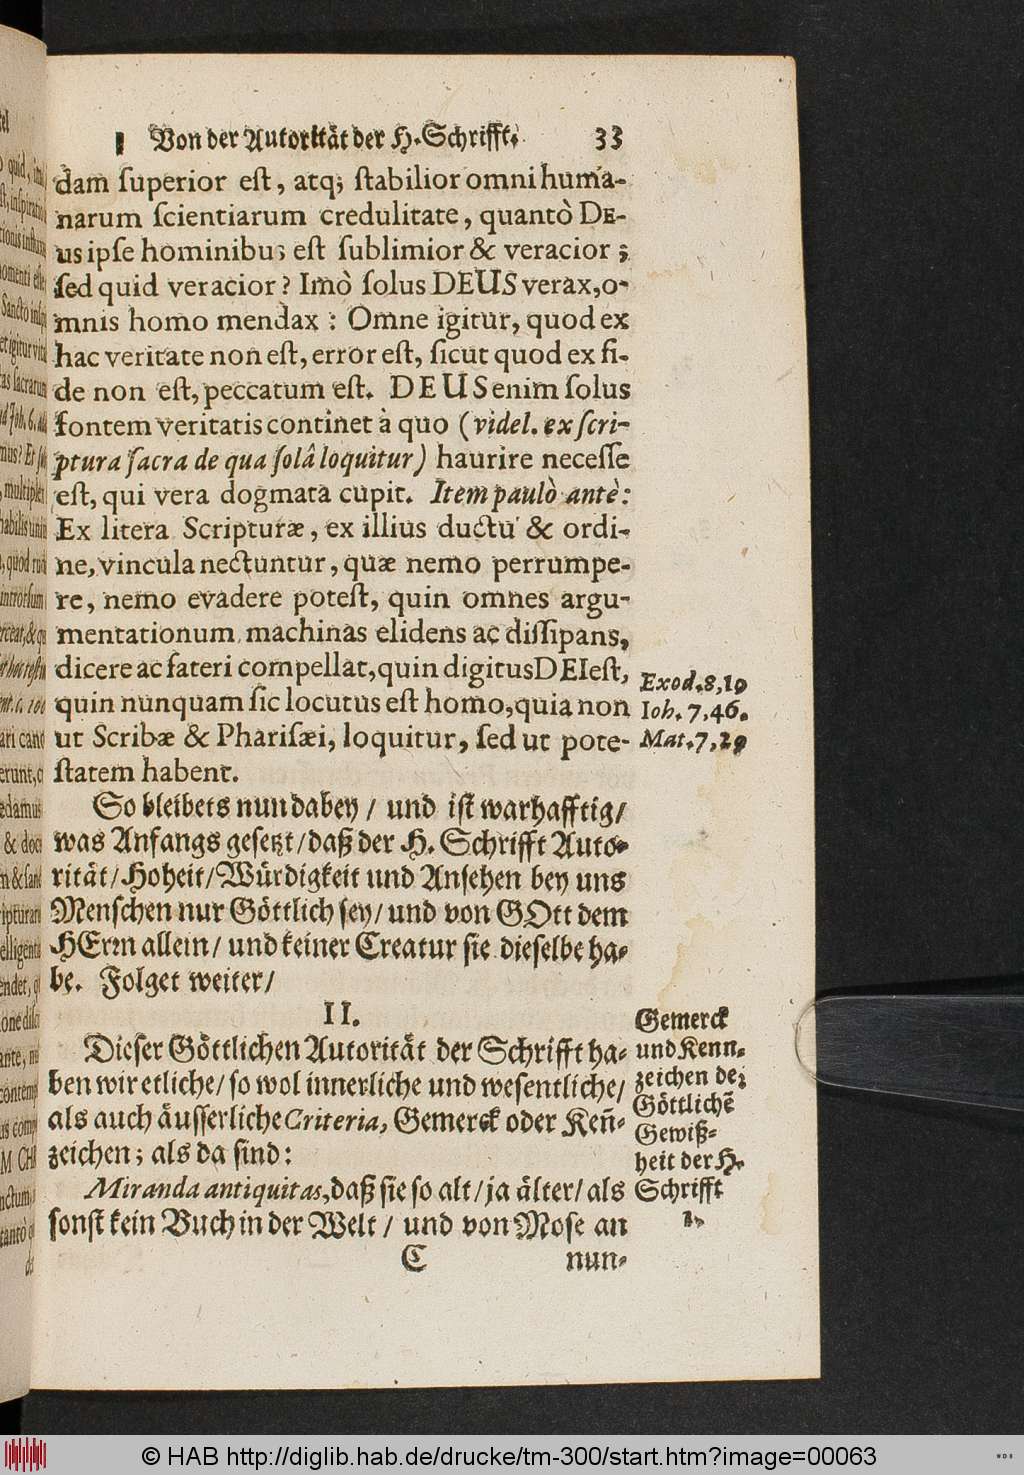 Von der Autorität der H. Schrifft. 33
dam ſuperior eſt, atq; ſtabilior omni huma-
narum ſcientiarum credulitate, quantò DE-
us ipſe hominibu; eſt ſublimior & veracior;
ſed quid veracior? Imò ſolus DEUS verax, o-
mnis homo mendax: Omne igitur, quod ex
hac veritate non eſt, error eſt, ſicut quod ex fi-
de non eſt, peccatum eſt. DEUS enim ſolus
fontem veritatis continet à quo (videl. ex ſcri-
ptura ſacra de qua ſolâ loquitur) haurire neceſſe
eſt, qui vera dogmata cupit. Item paulò antè:
Ex litera Scripturæ, ex illius ductu & ordi-
ne, vincula nectuntur, quæ nemo perrumpe-
re, nemo evadere poteſt, quin omnes argu-
mentationum machinas elidens ac diſſipans,
dicere ac fateri compellat, quin digitus DEI eſt,
quin nunquam ſic locutus eſt homo, quia non
ut Scribæ & Phariſæi, loquitur, ſed ut pote-
ſtatem habent.
Exod. 8, 19
Ioh. 7, 46.
Mat. 7, 29
So bleibets nun dabey / und iſt warhafftig /
was Anfangs geſetzt / daß der H. Schrifft Auto-
rität / Hoheit / Würdigkeit und Anſehen bey uns
Menſchen nur Göttlich ſey / und von GOtt dem
HErrn allein / und keiner Creatur ſie dieſelbe ha-
be. Folget weiter /
II.
Dieſer Göttlichen Autorität der Schrifft ha-
ben wir etliche / ſo wol innerliche und weſentliche /
als auch äuſſerliche Criteria, Gemerck oder Keñ-
zeichen; als da ſind:
Miranda antiquitas, daß ſie ſo alt / ja älter / als
ſonſt kein Buch in der Welt / und von Moſe an
Gemerck
und Kenn-
zeichen de;
Göttlichẽ
Gewiß-
heit der H.
Schrifft
1.
C nun-
© HAB http://diglib.hab.de/drucke/tm-300/start.htm?image=00063